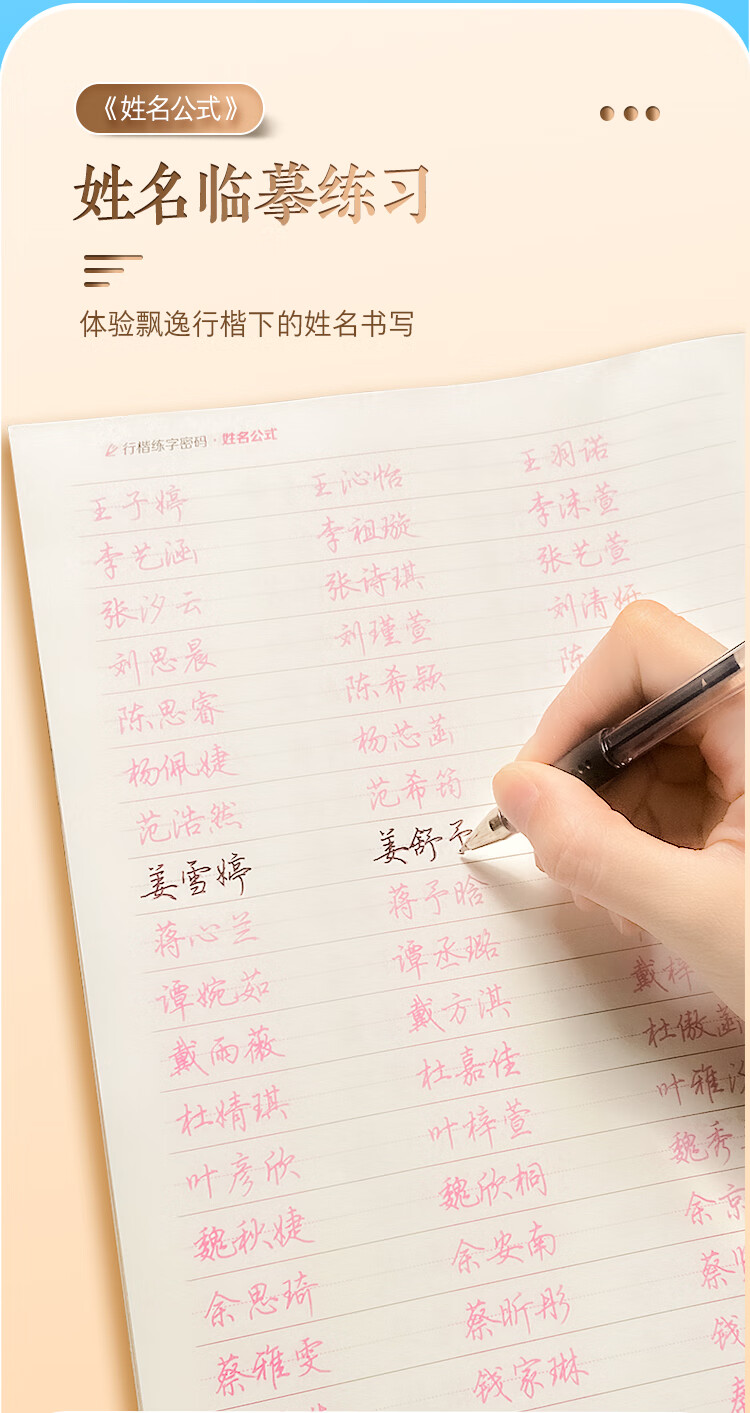 《姓名公式》
姓名临摹练习
体验飘逸行楷下的姓名书写
行楷练字密码·姓名公式
王子婷 王沁怡 王羽诺
李艺涵 李祖璇 李沫萱
张汐云 张诗琪 张艺萱
刘思晨 刘瑾萱 刘清妍
陈思睿 陈希颖 陈
杨佩婕 杨芯菡
范浩然 范希筠
姜雪婷 姜舒予
蒋心兰 蒋予晗
谭婉茹 谭丞璐
戴雨薇 戴方淇 戴梓
杜婧琪 杜嘉佳 杜傲菡
叶彦欣 叶梓萱 叶雅汐
魏秋婕 魏欣桐 魏秀
余思琦 余安南 余京
蔡雅雯 蔡昕彤 蔡
钱家琳 钱